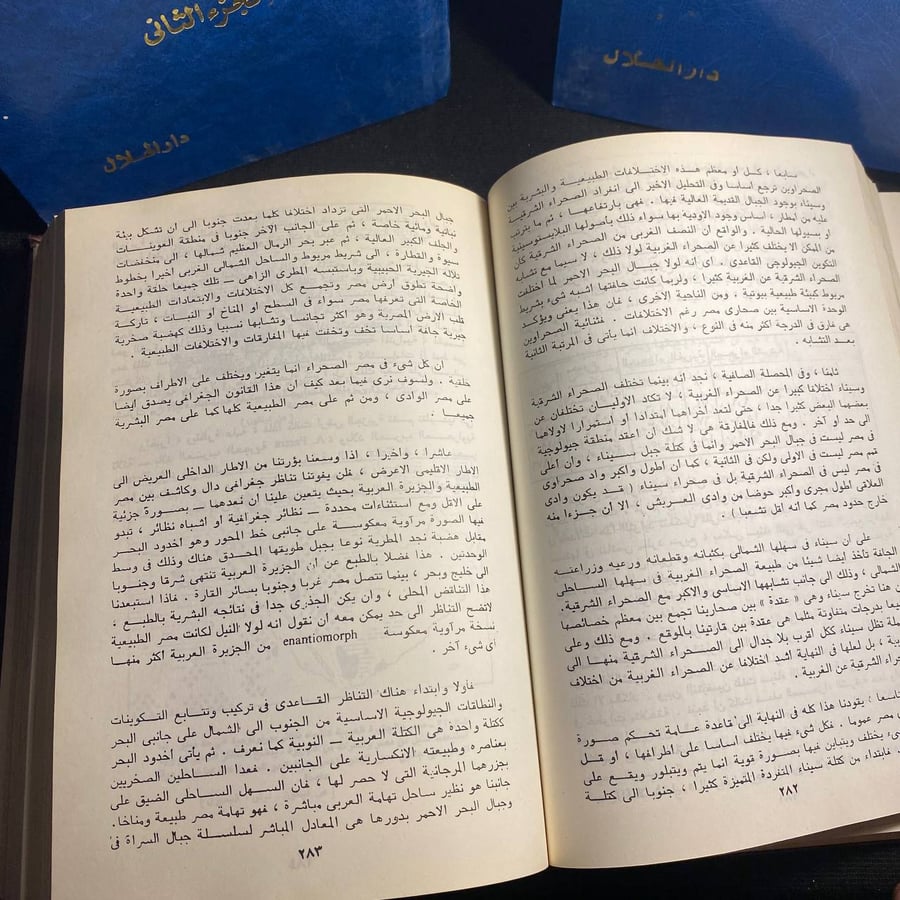 الجزء الثانى
دار الهلال
دار الهلال
سابعا ، كل او معظم هذه الاختلافات الطبيعية والبشرية بين
الصحراوين ترجع اساسا وفى التحليل الاخير الى انفراد الصحراء الشرقية
وسيناء بوجود الجبال القديمة العالية فيها . فهى بارتفاعها ، ثم ما يترتب
عليه من امطار ، اساس وجود الاودية بها سواء ذلك بأصولها البلايستوسينية
او سيولها الحالية . والواقع ان النصف الغربى من الصحراء الشرقية كان
من الممكن الا يختلف كثيرا عن الصحراء الغربية لولا ذلك ، لا سيما مع تشابه
التكوين الجيولوجى القاعدى . أى أنه لولا جبال البحر الاحمر لما اختلفت
الصحراء الشرقية عن الغربية كثيرا ، ولربما كانت حافتها اشبه شىء بشريط
مريوط كبيئة طبيعية بيوتية . ومن الناحية الاخرى ، فان هذا يعنى ويؤكد
الوحدة الاساسية بين صحارى مصر رغم الاختلافات . فثنائية الصحراوين
هى فارق فى الدرجة اكثر منه فى النوع ، والاختلاف انما يأتى فى المرتبة الثانية
بعد التشابه .
ثامنا ، وفى المحصلة الصافية ، نجد انه بينما تختلف الصحراء الشرقية
وسيناء اختلافا كبيرا عن الصحراء الغربية ، لا تكاد الاوليان تختلفان عن
بعضهما البعض كثيرا جدا ، حتى لتعد أخراهما امتدادا او استمرارا لاولاهما
الى حد او آخر . ومع ذلك فالمفارقة هى لا شك أن أعقد منطقة جيولوجية
فى مصر ليست فى جبال البحر الاحمر وانما فى كتلة جبل سيناء ، وان أعلى
قمم مصر ليست فى الاولى ولكن فى الثانية ، كما ان اطول واكبر واد صحراوى
فى مصر ليس فى الصحراء الشرقية بل فى صحراء سيناء ( قد يكون وادى
العلاقى اطول مجرى وأكبر حوضا من وادى العريش ، الا ان جزءا منه
خارج حدود مصر كما أنه أقل تشعبا ) .
على أن سيناء فى سهلها الشمالى بكثبانه وقطعانه ورعيه وزراعته
الجافة تأخذ ايضا شيئا من طبيعة الصحراء الغربية فى سهلها الساحلى
الشمالى ، وذلك الى جانب تشابهها الاساسى والاكبر مع الصحراء الشرقية.
من هنا تخرج سيناء وهى « عقدة » بين صحارينا تجمع بين معظم خصائصها
جميعا بدرجات متفاوتة مثلما هى عقدة بين قارتينا بالموقع . ومع ذلك وعلى
الجملة تظل سيناء ككل اقرب بلا جدال الى الصحراء الشرقية منها الى
الغربية ، بل لعلها فى النهاية اشد اختلافا عن الصحراء الغربية من اختلاف
الصحراء الشرقية عن الغربية .
تاسعا ، يقودنا هذا كله فى النهاية الى قاعدة عامة تحكم صورة
مصر عموما . فكل شىء فيها يختلف أساسا على اطرافها ، او قل
يختلف ويتباين فيها بصورة قوية انما يتم ويتبلور ويقع على
فابتداء من كتلة سيناء المتفردة المتميزة كثيرا ، جنوبا الى كتلة
٢٨٢
جبال البحر الاحمر التى تزداد اختلافا كلما بعدت جنوبا الى ان تشكل بيئة
نباتية ومائية خاصة ، ثم على الجانب الآخر جنوبا فى منطقة العوينات
والجلف الكبير العالية ، ثم عبر بحر الرمال العظيم شمالها ، الى منخفضات
سيوة والقطارة ، الى شريط مريوط والساحل الشمالى الغربى أخيرا بخطوط
تلاله الجيرية الحبيبية وباستبسه المطرى الزاهى ـ تلك جميعا حلقة واحدة
واضحة تطوق ارض مصر وتجمع كل الاختلافات والابتعادات الطبيعية
الخاصة التى تعرفها مصر سواء فى السطح او المناخ او النبات ، تاركة
قلب الارض المصرية وهو اكثر تجانسا وتشابها نسبيا وذلك كهضبة صخرية
جيرية جافة أساسا تخف وتخفت فيها المفارقات والاختلافات الطبيعية .
ان كل شىء فى مصر الصحراء انما يتغير ويختلف على الاطراف بصورة
خلقية . ولسوف نرى فيما بعد كيف ان هذا القانون الجغرافى يصدق ايضا
على مصر الوادى ، ومن ثم على مصر الطبيعية كلها كما على مصر البشرية
جميعا .
عاشرا ، وأخيرا ، اذا وسعنا بؤرتنا من الاطار الداخلى العريض الى
الاطار الاقليمى الاعرض ، فلن يفوتنا تناظر جغرافى دال وكاشف بين مصر
الطبيعية والجزيرة العربية بحيث يتعين علينا ان نعدهما ـ بصورة جزئية
على الاقل ومع استثناءات محددة ـ نظائر جغرافية او اشباه نظائر ، تبدو
فيها الصورة مرآوية معكوسة على جانبى خط المحور وهو أخدود البحر
مقابل هضبة نجد المطرية نوعا بجبل طويقها المحدق هناك وذلك فى وسط
الوحدتين . هذا فضلا بالطبع عن ان الجزيرة العربية تنتهى شرقا وجنوبا
الى خليج وبحر ، بينما تتصل مصر غربا وجنوبا بسائر القارة . فاذا استبعدنا
هذا التناقض المحلى ، وان يكن الجذرى جدا فى نتائجه البشرية بالطبع ،
لاتضح التناظر الى حد يمكن معه أن نقول انه لولا النيل لكانت مصر الطبيعية
نسخة مرآوية معكوسة enantiomorph من الجزيرة العربية أكثر منها
أى شىء آخر .
فأولا وابتداء هناك التناظر القاعدى فى تركيب وتتابع التكوينات
والنطاقات الجيولوجية الاساسية من الجنوب الى الشمال على جانبى البحر
ككتلة واحدة هى الكتلة العربية ـ النوبية كما نعرف . ثم يأتى أخدود البحر
بعناصره وطبيعته الانكسارية على الجانبين . فعدا الساحلين الصخريين
بجزرها المرجانية التى لا حصر لها ، فان السهل الساحلى الضيق على
جانبنا هو نظير ساحل تهامة العربى مباشرة ، فهو تهامة مصر طبيعة ومناخا.
وجبال البحر الاحمر بدورها هى المعادل المباشر لسلسلة جبال السراة فى
٢٨٣